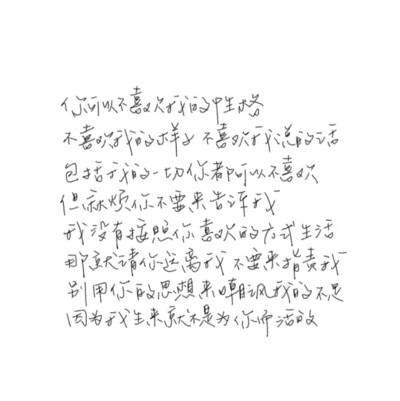 你可以不喜欢我的性格
不喜欢我的样子 不喜欢我说的话
包括我的一切你都可以不喜欢
但就烦你不要来告诉我
我没有按照你喜欢的方式生活
那就请你远离我 不要来指责我
别用你的思想来嘲讽我的不足
因为我生来就不是为你而活的